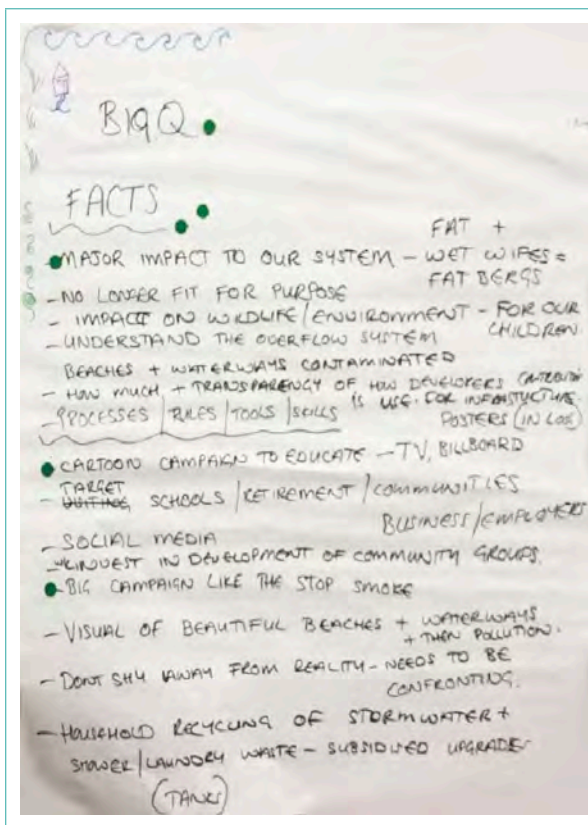 BIG Q
FACTS
- MAJOR IMPACT TO OUR SYSTEM - FAT +
WET WIPES =
FAT BERGS
- NO LONGER FIT FOR PURPOSE
- IMPACT ON WILDLIFE/ENVIRONMENT - FOR OUR
CHILDREN.
- UNDERSTAND THE OVERFLOW SYSTEM
BEACHES + WATERWAYS CONTAMINATED
- HOW MUCH + TRANSPARENCY OF HOW DEVELOPERS
IS USE. FOR INFRASTUCTURE.
- PROCESSES / RULES / TOOLS / SKILLS
POSTERS (IN LOO)
- CARTOON CAMPAIGN TO EDUCATE - TV, BILLBOARD
TARGET
- SCHOOLS / RETIREMENT / COMMUNITIES
BUSINESS/EMPLOYERS
- SOCIAL MEDIA
- INVEST IN DEVELOPMENT OF COMMUNITY GROUPS.
- BIG CAMPAIGN LIKE THE STOP SMOKE
- VISUAL OF BEAUTIFUL BEACHES + WATERWAYS
+ THEN POLLUTION.
- DONT SHY AWAY FROM REALITY - NEEDS TO BE
CONFRONTING.
- HOUSEHOLD RECYCLING OF STORMWATER +
SHOWER/LAUNDRY WASTE - SUBSIDISED UPGRADE
(TANKS)